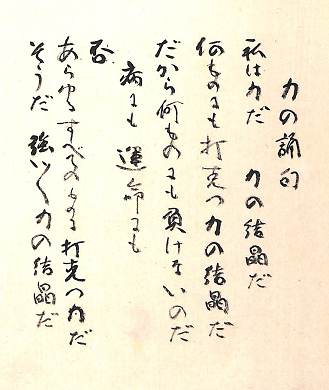 力の誦句
私は力だ 力の結晶だ
何ものにも打克つ力の結晶だ
だから何ものにも負けないのだ
病にも 運命にも
否
あらゆるすべてのものに打克つ力だ
そうだ 強い〱力の結晶だ